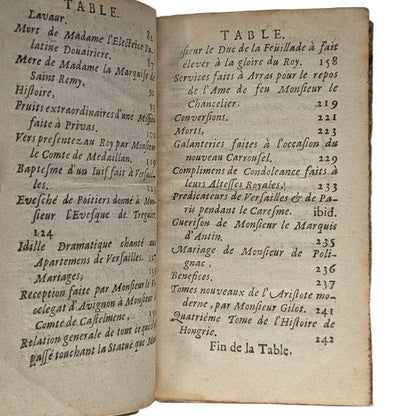 TABLE.
Lavaur. 82
Mort de Madame l'Electrice Pa-
latine Doüairiere.
Mere de Madame la Marquise de
Saint Remy.
Histoire, 93
Fruits extraordinaires d'une Mission
faite à Privas. 102
Vers presentez au Roy par Monsieur
le Comte de Medaillan. 119
Baptesme d'un Iuif fait à Versail-
les. 123
Evesché de Poitiers donné à Mon-
sieur l'Evesque de Treguier.
124
Idille Dramatique chanté aux
Apartemens de Versailles.
Mariages,
Reception faite par Monsieur le Vi-
celegat d'Avignon à Monsieur
Comte de Castelmene,
Relation generale de tout ce qui
passé touchant la Statuë que Mon-
TABLE.
sieur le Duc de la Feüillade à fait
élever à la gloire du Roy. 158
Services faits à Arras pour le repos
de l'Ame de feu Monsieur le
Chancelier. 219
Conversions. 221
Morts, 223
Galanteries faites à l'occasion du
nouveau Carrousel. 229
Complimens de Condoleance faits à
leurs Altesses Royales. 233
Predicateurs de Versailles & de Pa-
ris pendant le Caresme. ibid.
Guerison de Monsieur le Marquis
d'Antin. 235
Mariage de Monsieur de Poli-
gnac. 236
Benefices. 237
Tomes nouveaux de l'Aristote mo-
derne, par Monsieur Gilot. 241
Quatriéme Tome de l'Histoire de
Hongrie. 242
Fin de la Table.